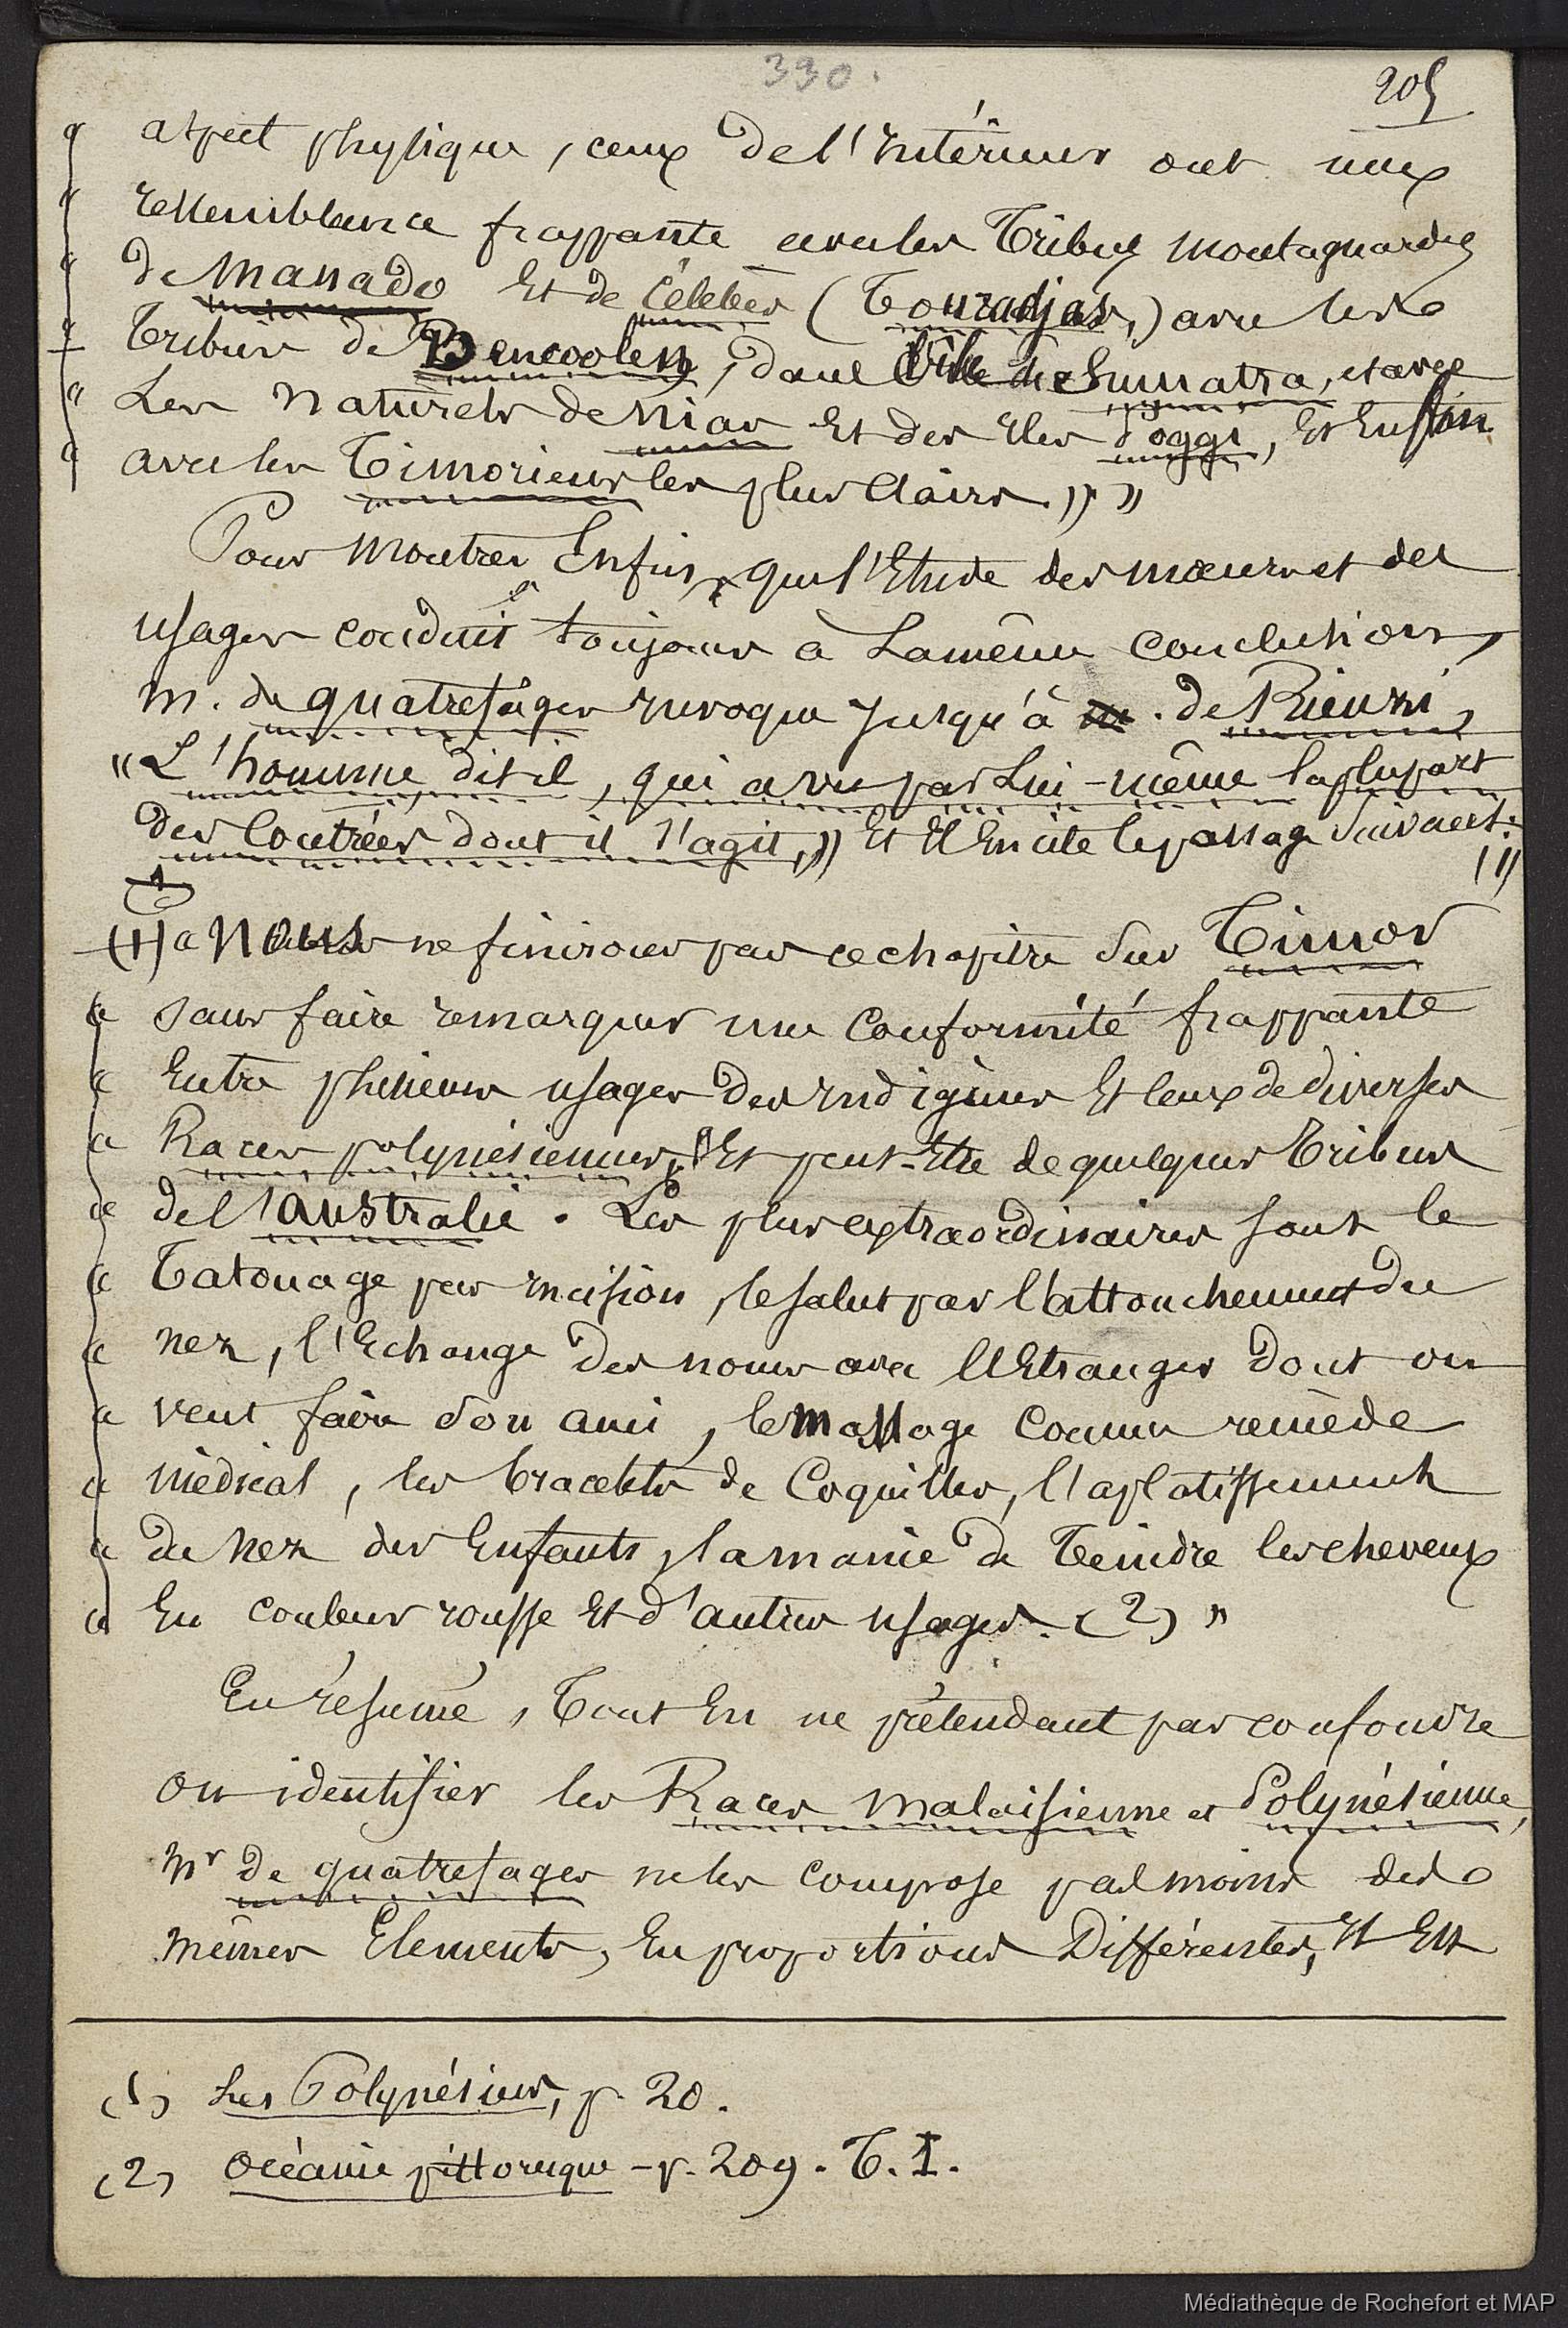 390.
205
" aspect physique, ceux de l'Intérieur ont une
" ressemblance frappante avec les Tribus montagnardes
" de Manado Et de Célèbes (Touradjas,) avec les
" Tribus de Bencoolen, dans l'île de Sumatra, et avec
" Les naturels de Nias Et des Iles Poggi, Et Enfin
" avec les Timoriens les plus clairs. » »
Pour montrer Enfin, que l'Etude des mœurs et des
usages conduit toujours à La même conclusion,
M. de quatrefages invoque jusqu'à M. de Rienzi,
"L'homme dit-il, qui a vu par Lui-même la plupart
des Contrées dont il s'agit, » Et Il En cite le passage Suivant:
(1)
(1) " Nous ne finirons pas ce chapitre sur Timor
" sans faire remarquer une Conformité frappante
" Entre plusieurs usages des Indigènes Et ceux de diverses
" Races polynésiennes, Et peut-Etre de quelques Tribus
" de l'Australie. Les plus extraordinaires sont le
" Tatouage par incision, le salut par l'attouchement du
" nez, l'Echange des noms avec l'Etranger dont on
" veut faire son ami, le massage comme remède
" médical, les bracelets de Coquilles, l'aplatissement
" du nez des Enfants, la manie de Teindre les cheveux
" En couleur rousse Et d'autres usages. (2) "
En résumé, Tout En ne prétendant pas confondre
ou identifier les Races malaisienne et Polynésienne,
Mr de quatrefages ne les compose pas moins des
mêmes Eléments, En proportions Différentes, Et Est
(1) Les Polynésiens, p. 20.
(2) Océanie pittoresque - p. 209. T. I.
Médiathèque de Rochefort et MAP